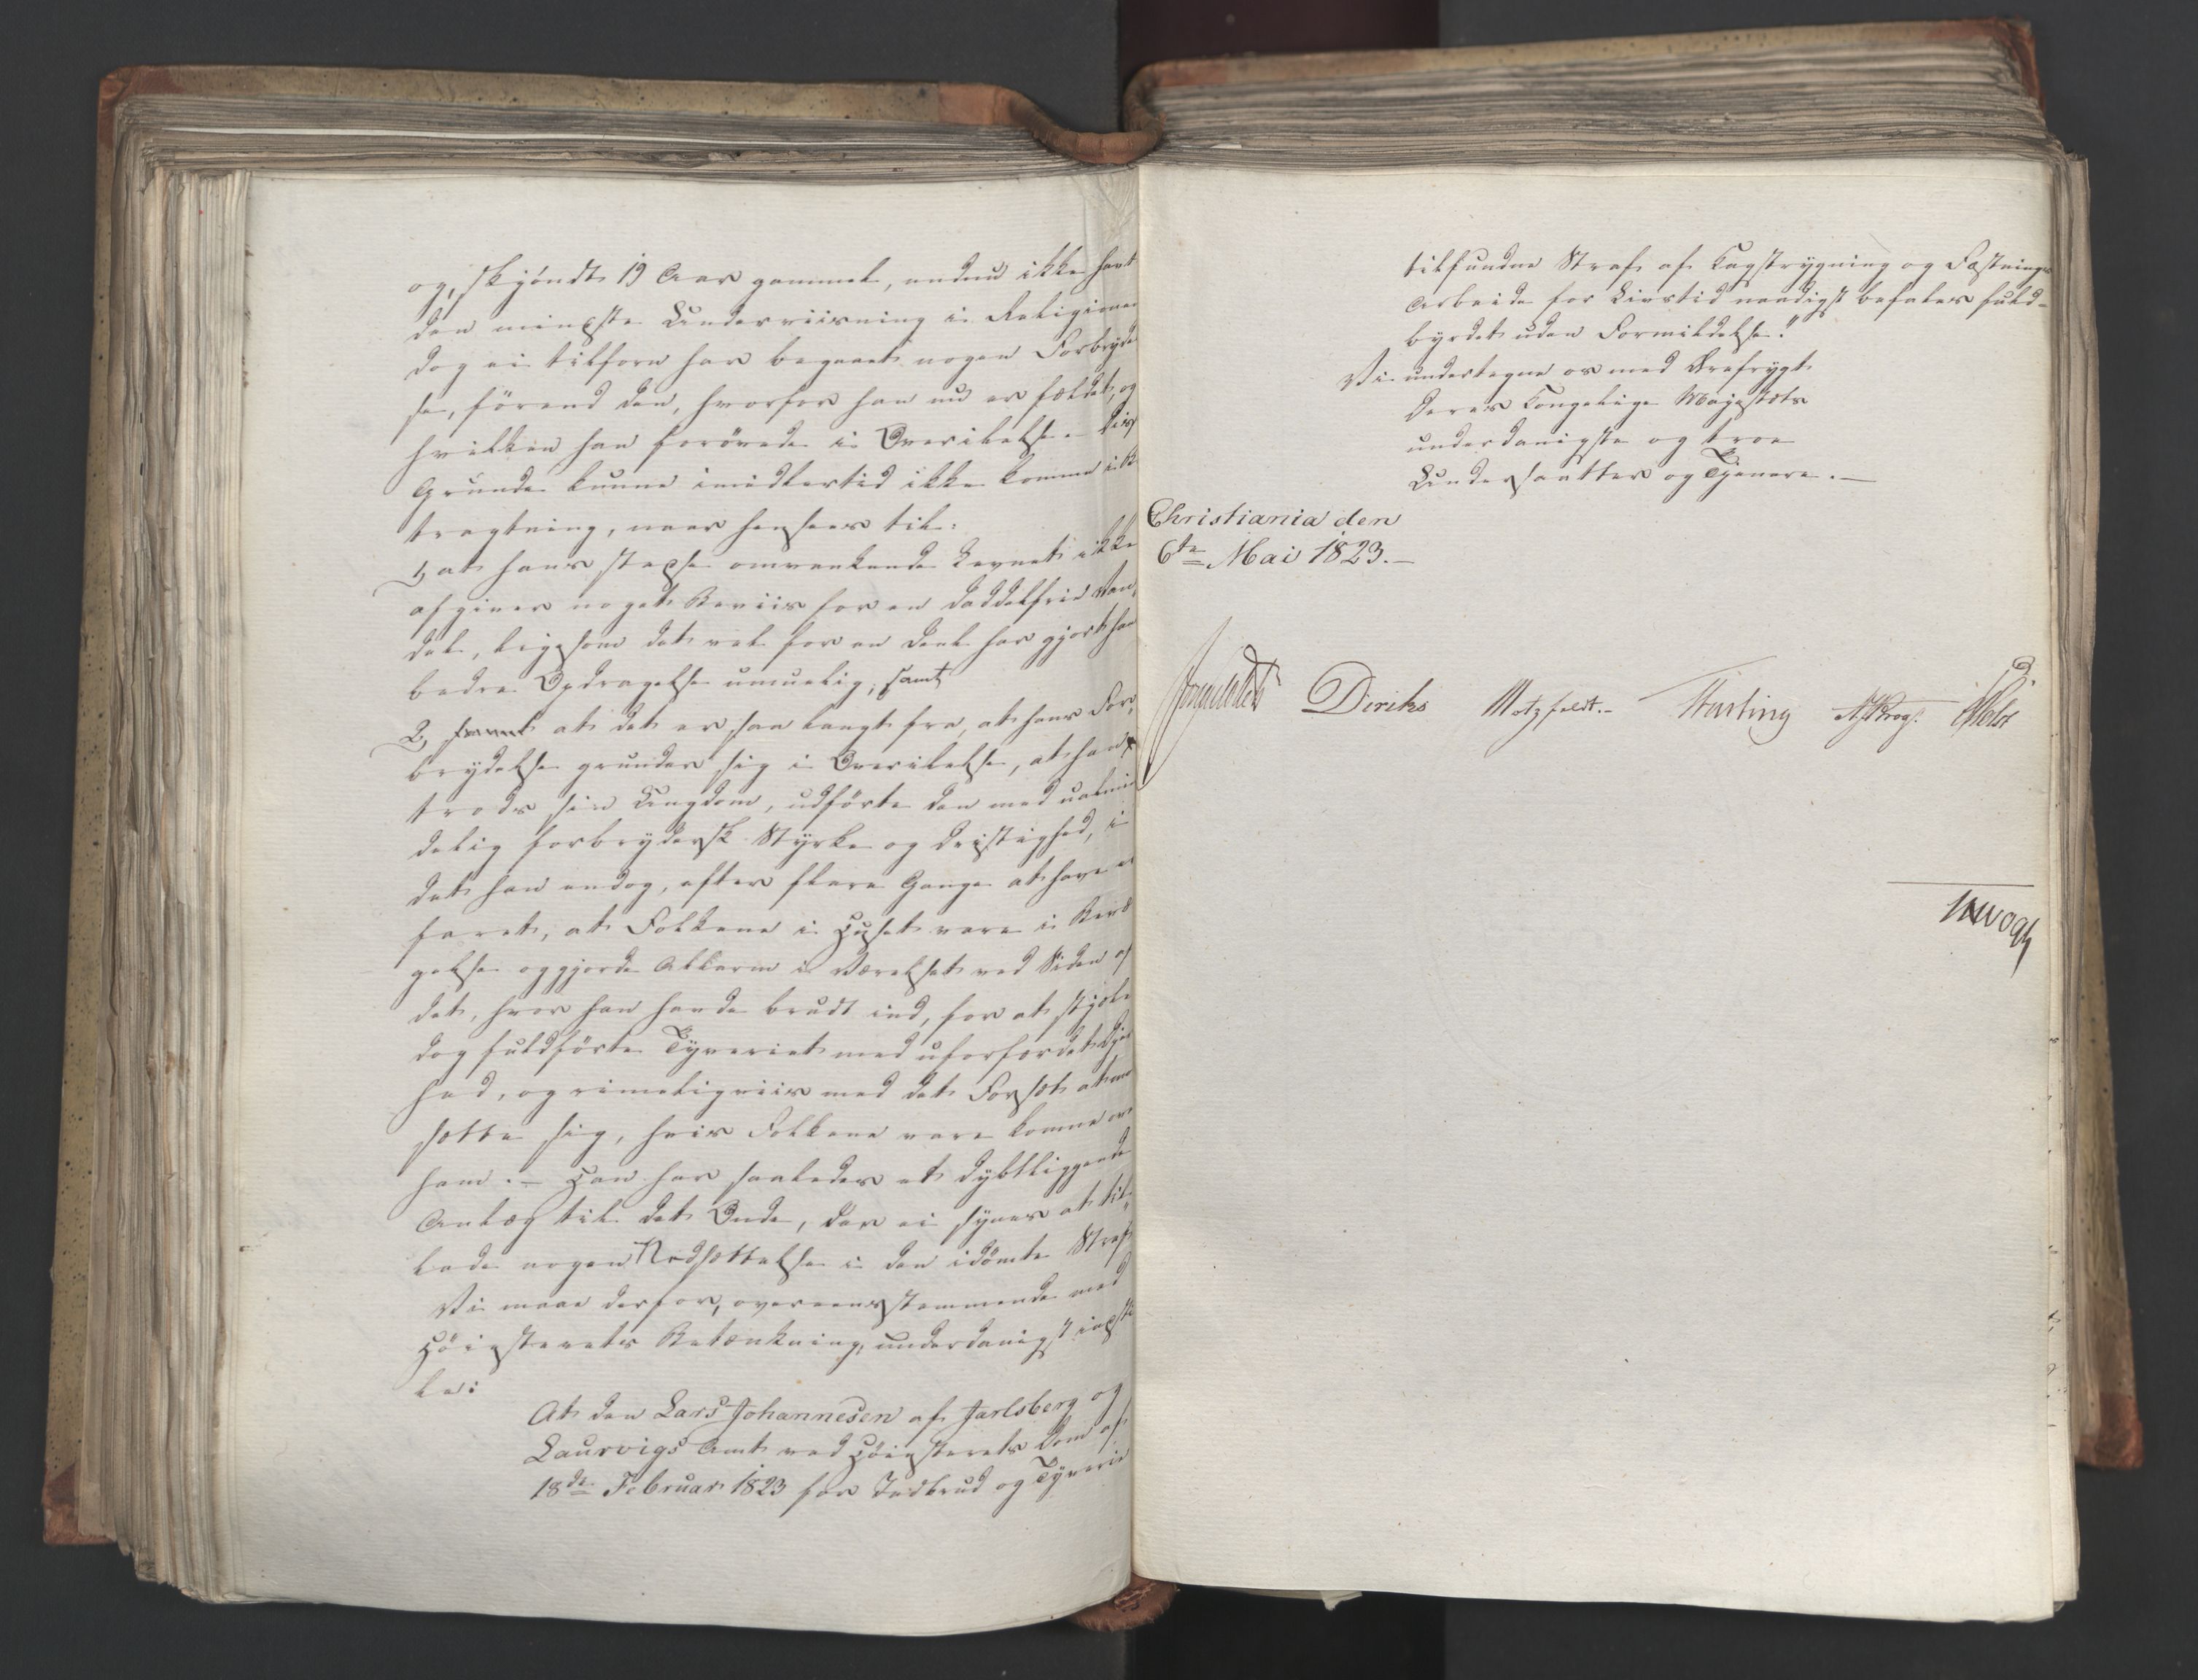 og, skjöndt 19 Aar gammel, endnu ikke havt
den mindste Underviisning i Religionen
dog ei tilforn har begaaet nogen Forbryde
se, förend den, hvorfor han nu er fældet, og
hvilken han forövede i Overilelse. Diss
Grunde kunne imidlertid ikke komme i Be
tragtning, naar henseees til:
1, at hans stedse omvankende Levnet ikke
afgiver noget Beviis for en daddelfrie Van,
del, ligesom det vel for en Deel har gjort han
bedre Opdragelse umuelig, samt
2, at det er saa langt fra, at hans For,
brydelse grunder sig i Overilelse, at han
trods sin Ungdom, udförte den med ualmin
delig forbrydersk Styrke og Dristighed, i
det han endog, efter flere Gange at have er
faret, at Folkene i Huset vare i Bevæ
gelse og gjorde Allarm i Værelset ved Siden af
det, hvor han havde brudt ind, for at stjæle
dog fuldförte Tyveriet med uforfærdet Djer
hed, og rimeligviis med det Forsæt at mod
sætte sig, hvis Folkene vare komne over
ham. – Han har saaledes et dybtliggende
Anlæg til det Onde, der ei synes at til,
lade nogen Nedsættelse i den idömte Straf
Vi maae derfor, overeensstemmende med
Höiesterets Betænkning, underdanigst indstil
le:
At den Lars Johannesen af Jarlsberg og
Laurvigs Amt ved Höiesterets Dom af
18de Februar 1823 for Indbrud og Tyverie
tilfundne Straf af Kagstrygning og Fæstnings
Arbeide for Livstid naadigst befales fuld-
byrdet uden Formildelse."
Vi undertegne os med Ærefrygt
Deres Kongelige Majestæts
underdanigste og troe
Undersaatter og Tjenere. —
Christiania den
6te Mai 1823. —
Diriks Motzfeldt. –